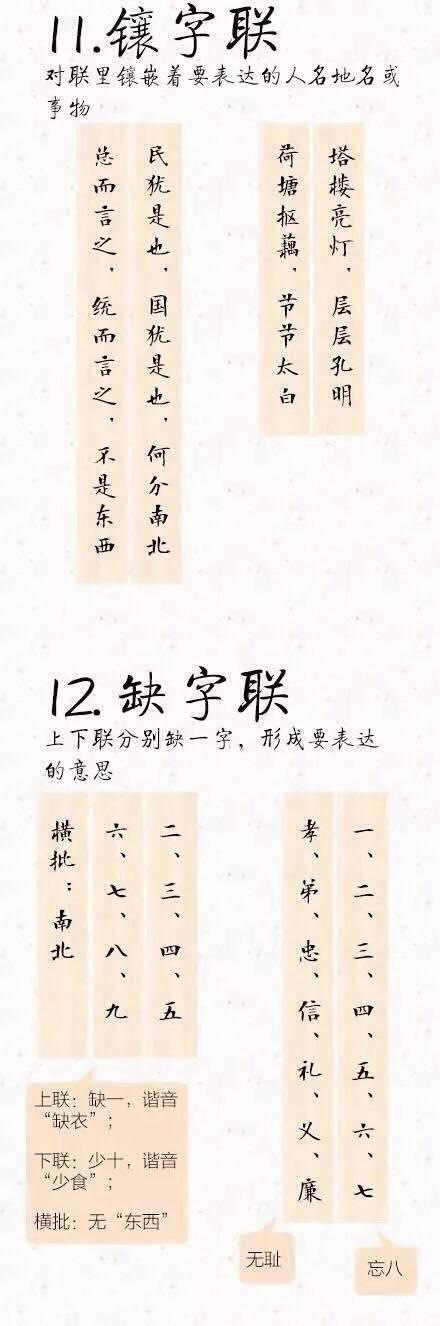 11.镶字联
对联里镶嵌着要表达的人名地名或
事物
塔搂亮灯，层层孔明
荷塘抠藕，节节太白
民犹是也，国犹是也，何分南北
总而言之，统而言之，不是东西
12.缺字联
上下联分别缺一字，形成要表达
的意思
一、二、三、四、五、六、七
孝、弟、忠、信、礼、义、廉
忘八
无耻
二、三、四、五
六、七、八、九
横批：南北
上联：缺一，谐音
“缺衣”；
下联：少十，谐音
“少食”；
横批：无“东西”